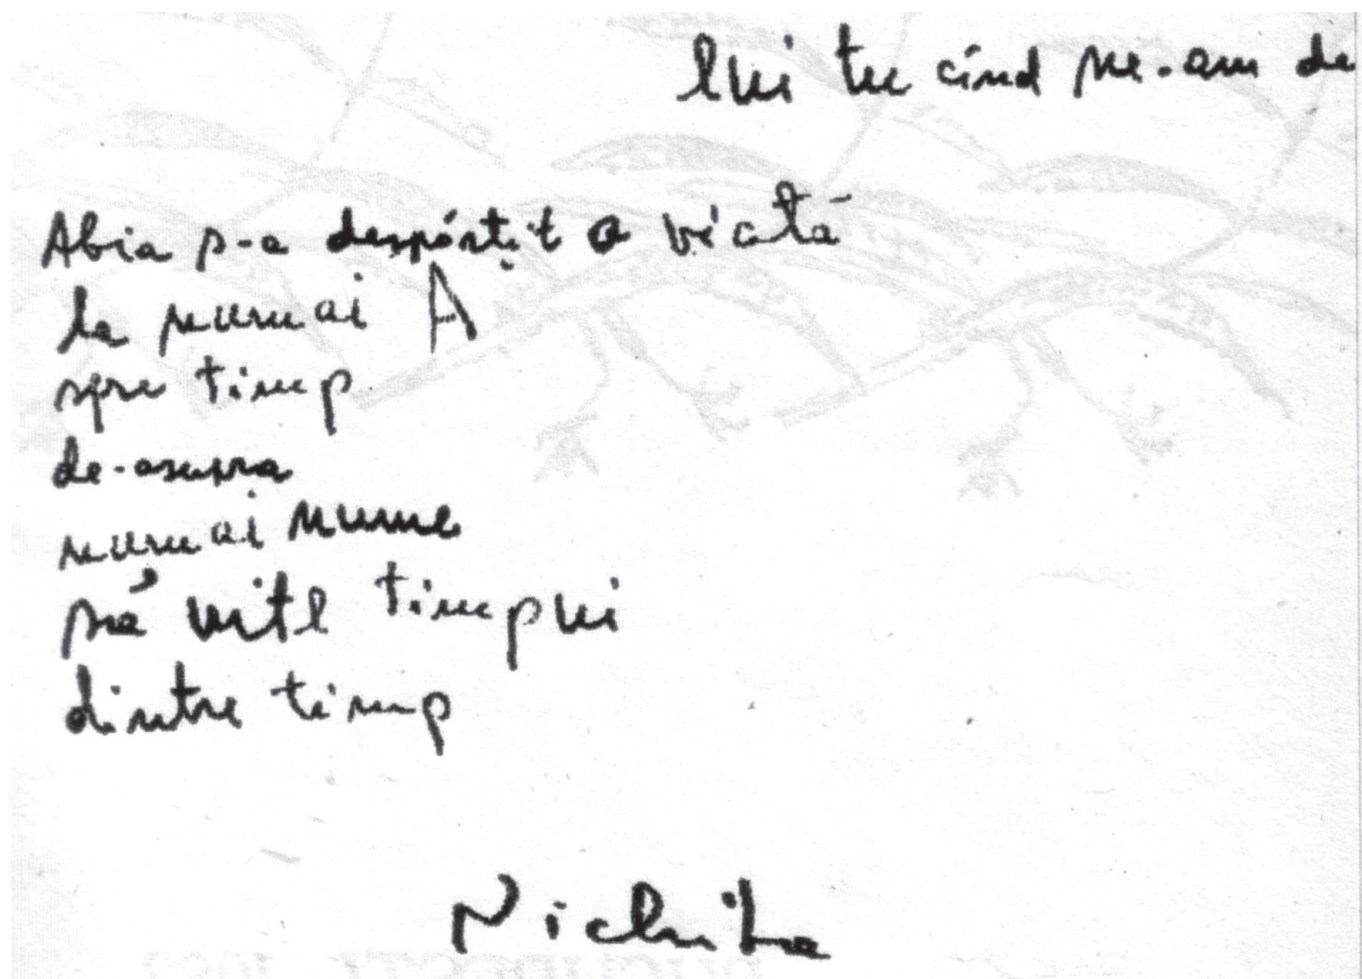 lui tu cînd ne-am de
Abia s-a despărțit o viată
la numai A
spre timp
de-asupra
numai nume
să uite timpui
dintre timp
Nichita